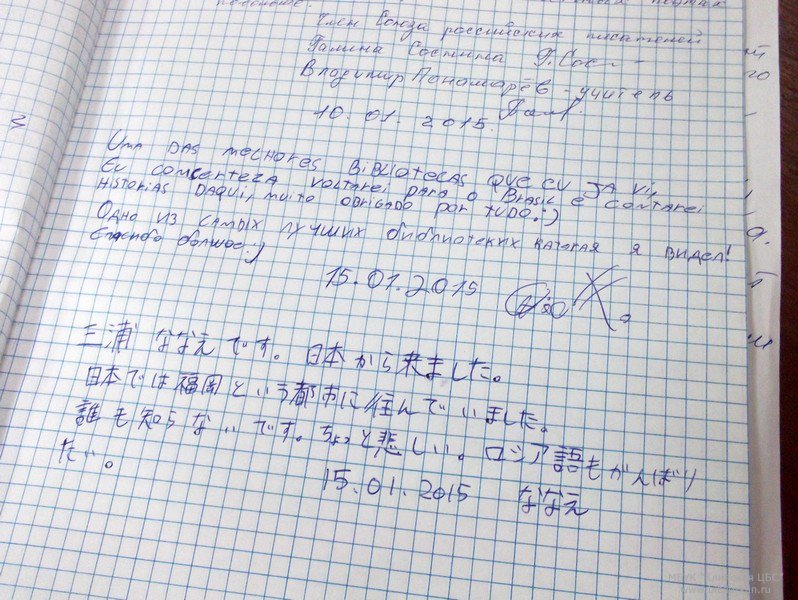 Член Союза российских писателей
Галина
Владимир Пономарёв - учитель
10.01.2015.
UMA DAS MELHORES BIBLIOTECAS QUE EU JA VI,
EU COMCERTEZA VOLTAREI PARA O BRASIL E CONTAREI
HISTORIAS DAQUI, MUITO OBRIGADO POR TUDO. :)
Одно из самых лучших библиотеких каторая я видел!
Спасибо большое :)
15.01.2015
三浦 ななえです。日本から来ました。
日本では福岡という都市に住んでいました。
誰も知らないです。ちょっと悲しい。ロシア語もがんばり
たい。
15.01.2015 ななえ